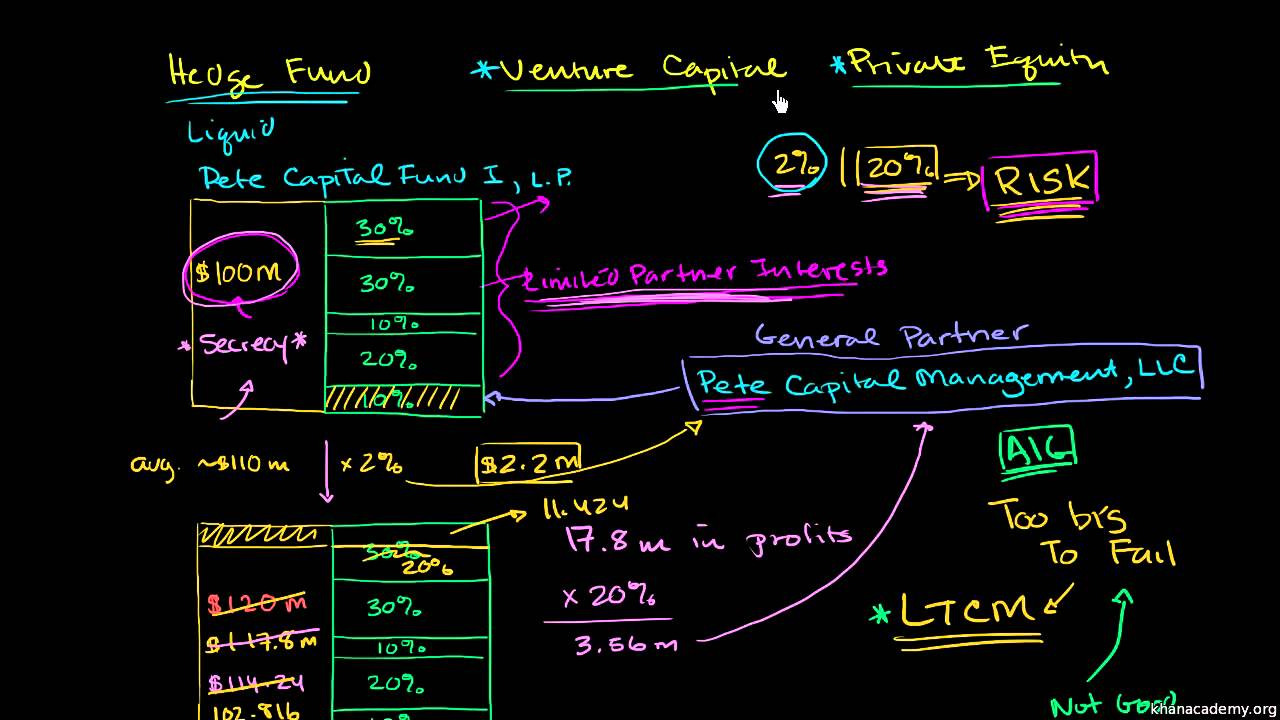 Hedge Fund
*Venture Capital
*Private Equity
Liquid
Pete Capital Fund I, L.P.
2% || 20% ⇒ RISK
$100m
30%
30%
10%
20%
10%
*Secrecy*
Limited Partner Interests
General Partner
Pete Capital Management, LLC
avg. ~$110m x 2% $2.2m
AIG
Too big
To Fail
*LTCM
Not Good
11.424
17.8m in profits
x 20%
3.56m
30%
20%
$120m
30%
$117.8m
10%
$114.24
20%
102.816
10%
khanacademy.org